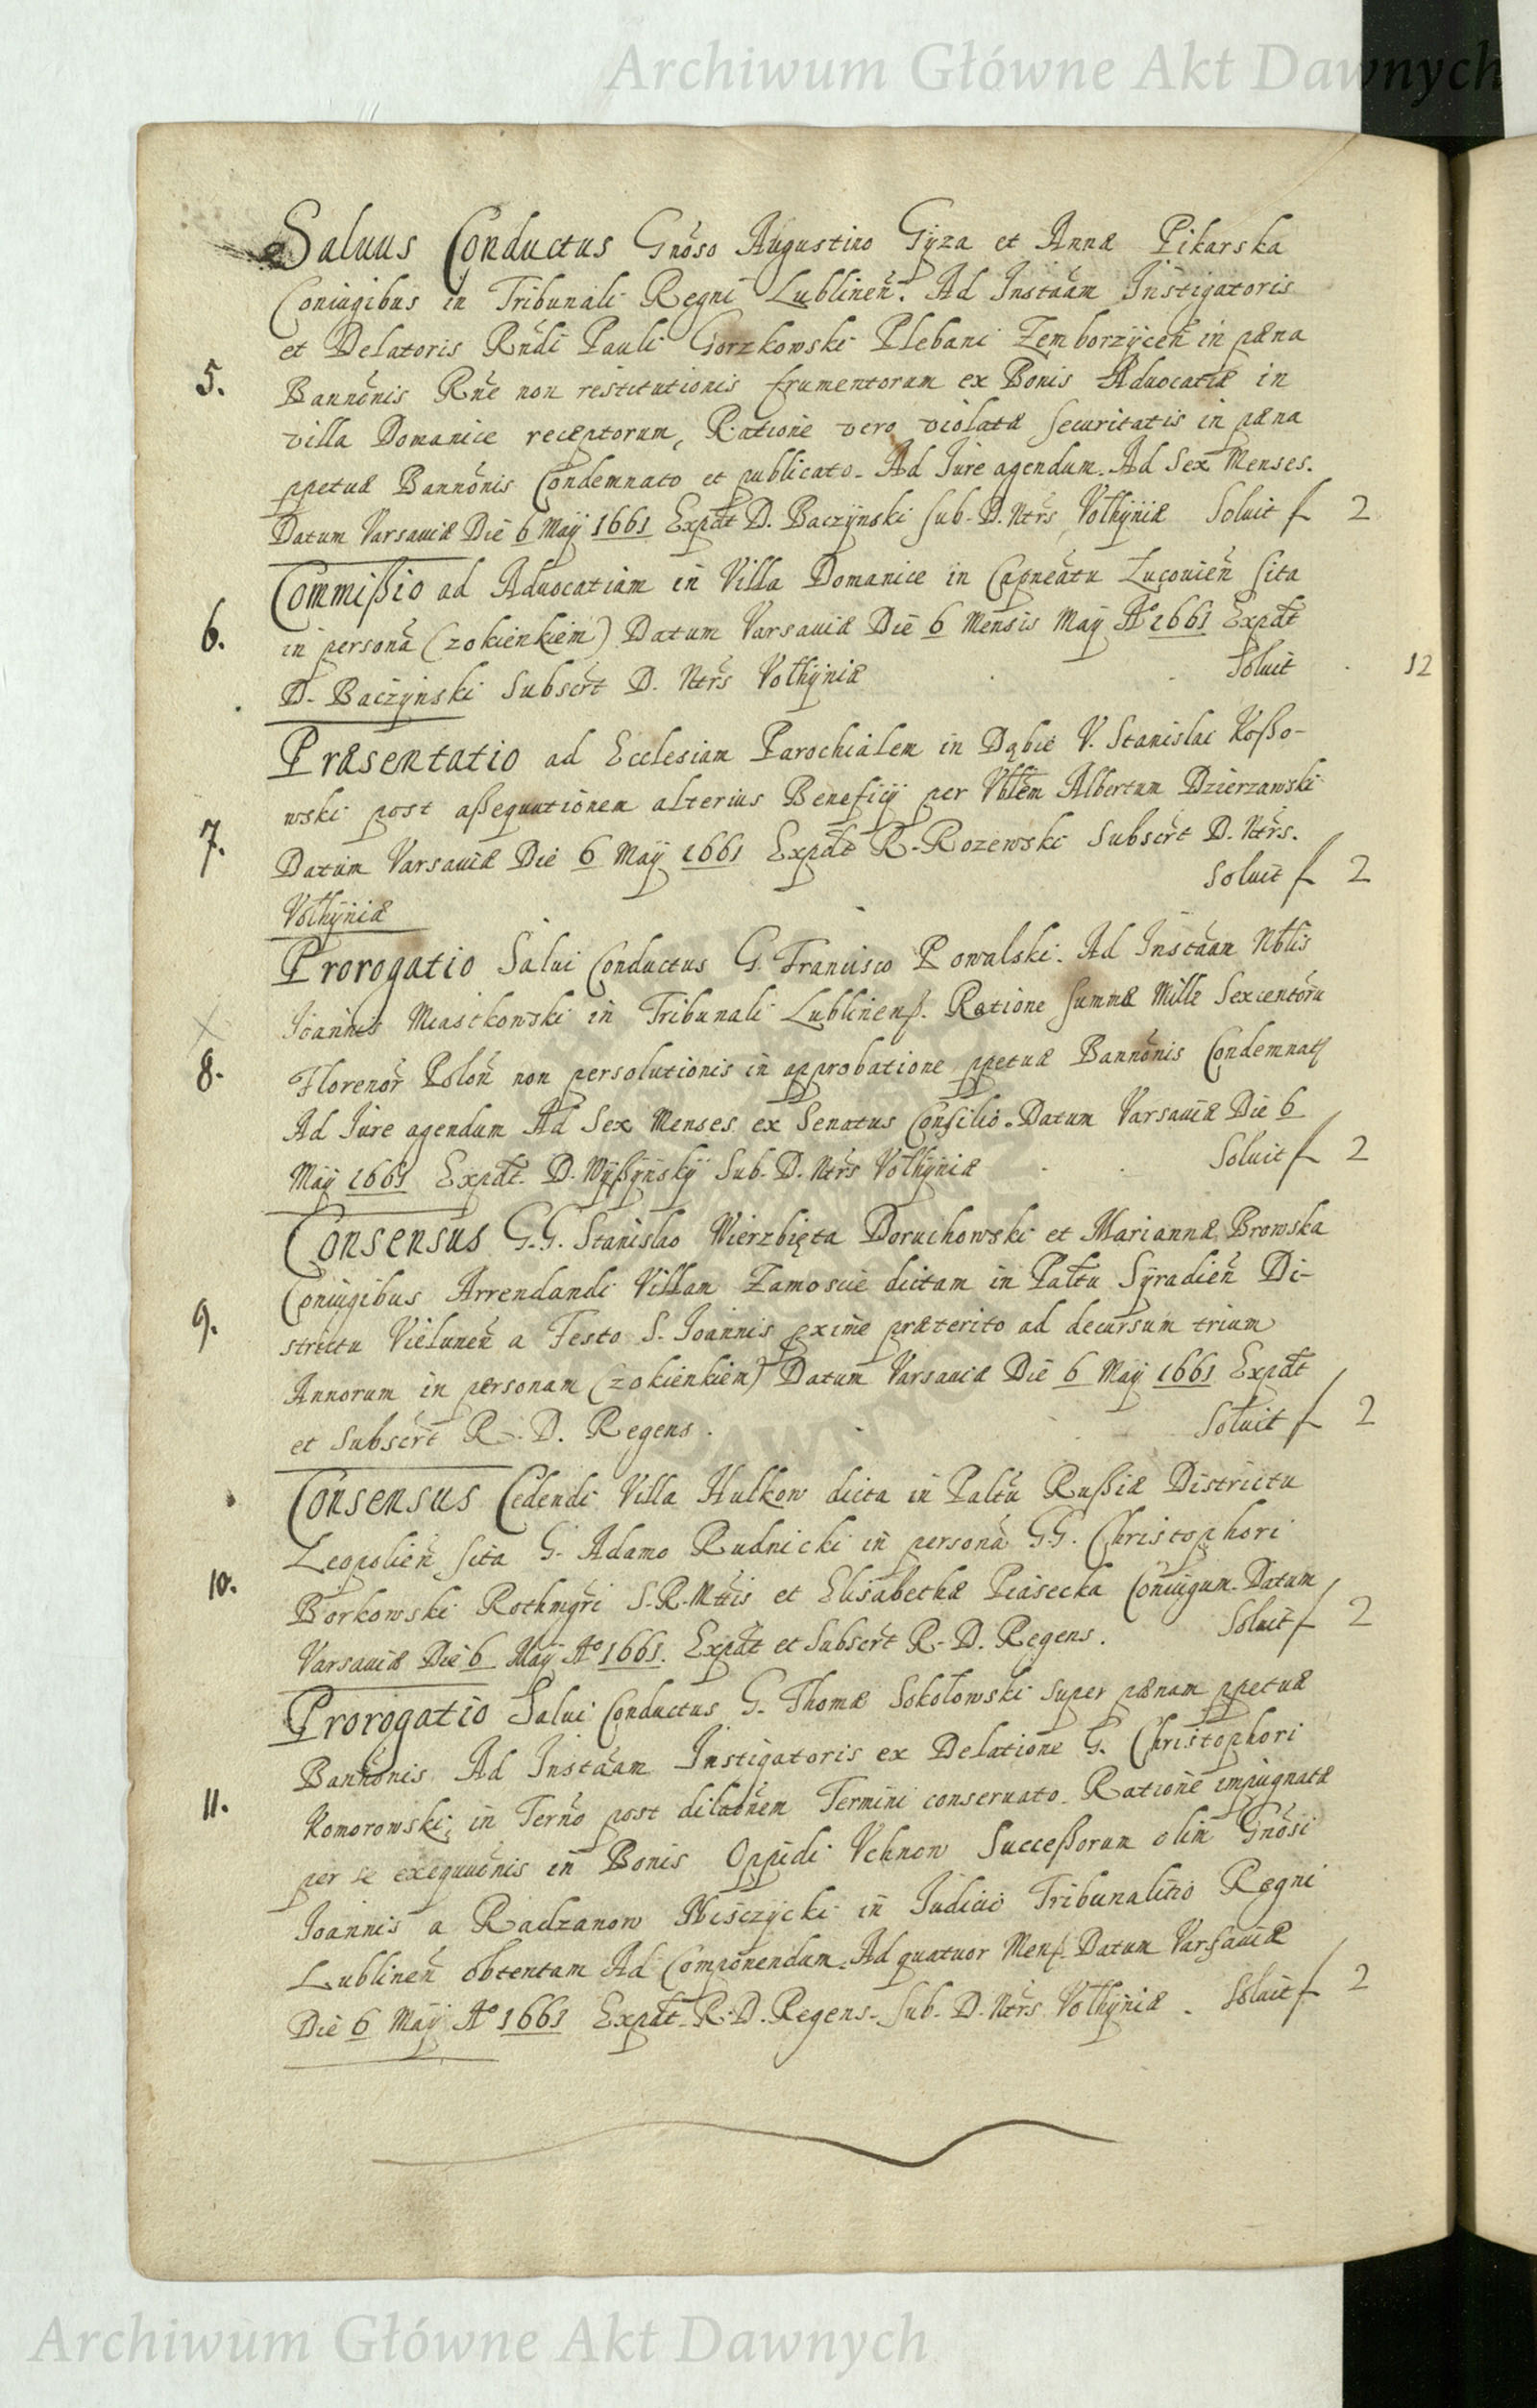 Archiwum Główne Akt Dawnych
Saluus Conductus Gnõso Augustino Gÿza et Annæ Pikarska
Coniugibus in Tribunali Regni Lublineñ. Ad Instãam Instigatoris
et Delatoris Rñdi Pauli Gorzkowski Plebani Zemborzÿceñ in pæna
5. Bannõnis Rñe non restitutionis frumentorum ex Bonis Aduocatiæ in
villa Domanice receptorum, Ratione vero violatæ securitatis in pæna
ppetuæ Bannõnis Condemnato et publicato. Ad Iure agendum. Ad Sex Menses.
Datum Varsauiæ Die 6 Maÿ 1661 Expdt D. Baczÿnski sub. D. Ntrs Volhÿniæ Soluit f 2
Commißio ad Aduocatiam in Villa Domanice in Capneatu Lucouieñ sita
6. in personã (z okienkiem) Datum Varsauiæ Die 6 Mensis Maÿ Aº 1661 Expdt
D. Baczÿnski Subscrt D. Ntrs Volhÿniæ Soluit 12
Præsentatio ad Ecclesiam Parochialem in Dąbie V. Stanislai Koßo-
wski post aßequutionem alterius Beneficÿ per Vblem Albertum Dzierzawski
7. Datum Varsauiæ Die 6 Maÿ 1661 Expdt R. Rozewski Subscrt D. Ntrs.
Volhÿniæ Soluit f 2
Prorogatio Salui Conductus G. Francisco Powalski. Ad Instãam Nblis
Ioannis Miastkowski in Tribunali Lublinens. Ratione summæ Mille Sexcentorũ
8. Florenor Poloñ non persolutionis in approbatione ppetuæ Bannõnis Condemnat
Ad Iure agendum Ad Sex Menses ex Senatus Consilio. Datum Varsauiæ Die 6
Maÿ 1661 Expdt. D. Wÿßÿnskÿ Sub. D. Ntrs Volhÿniæ Soluit f 2
Consensus G.G. Stanislao Wierzbięta Doruchowski et Mariannæ Browska
Coniugibus Arrendandi Villam Zamoscie dictam in Paltu Sÿradieñ Di-
9. strictu Vieluneñ a Festo S. Ioannis pxime præterito ad decursum trium
Annorum in personam (z okienkiem) Datum Varsauiæ Die 6 Maÿ 1661 Expdt
et Subscrt R. D. Regens. Soluit f 2
Consensus Cedendi Villa Hulkow dicta in Paltu Rußiæ Districtu
Leopolieñ sita G. Adamo Rudnicki in personã G.G. Christophori
10. Borkowski Rothmgri S.R.Mttis et Elisabethæ Piasecka Coniugum. Datum
Varsauiæ Die 6 Maÿ Aº 1661. Expdt et Subscrt R. D. Regens. Soluit f 2
Prorogatio Salui Conductus G. Thomæ Sokołowski super pænam ppetuæ
Bannõnis Ad Instãam Instigatoris ex Delatione G. Christophori
11. Komorowski, in Termo post dilatõnem Termini conseruato. Ratione impugnatæ
per se exequuõnis in Bonis Oppidi Vchnow Succeßorum olim Gnõsi
Ioannis a Radzanow in Iudicio Tribunalitio Regni
Lublineñ obtentam Ad Componendum. Ad quatuor Mens. Datum Varsauiæ
Die 6 Maÿ Aº 1661 Expdt. R. D. Regens. Sub. D. Ntrs Volhÿniæ. Soluit f 2
Archiwum Główne Akt Dawnych